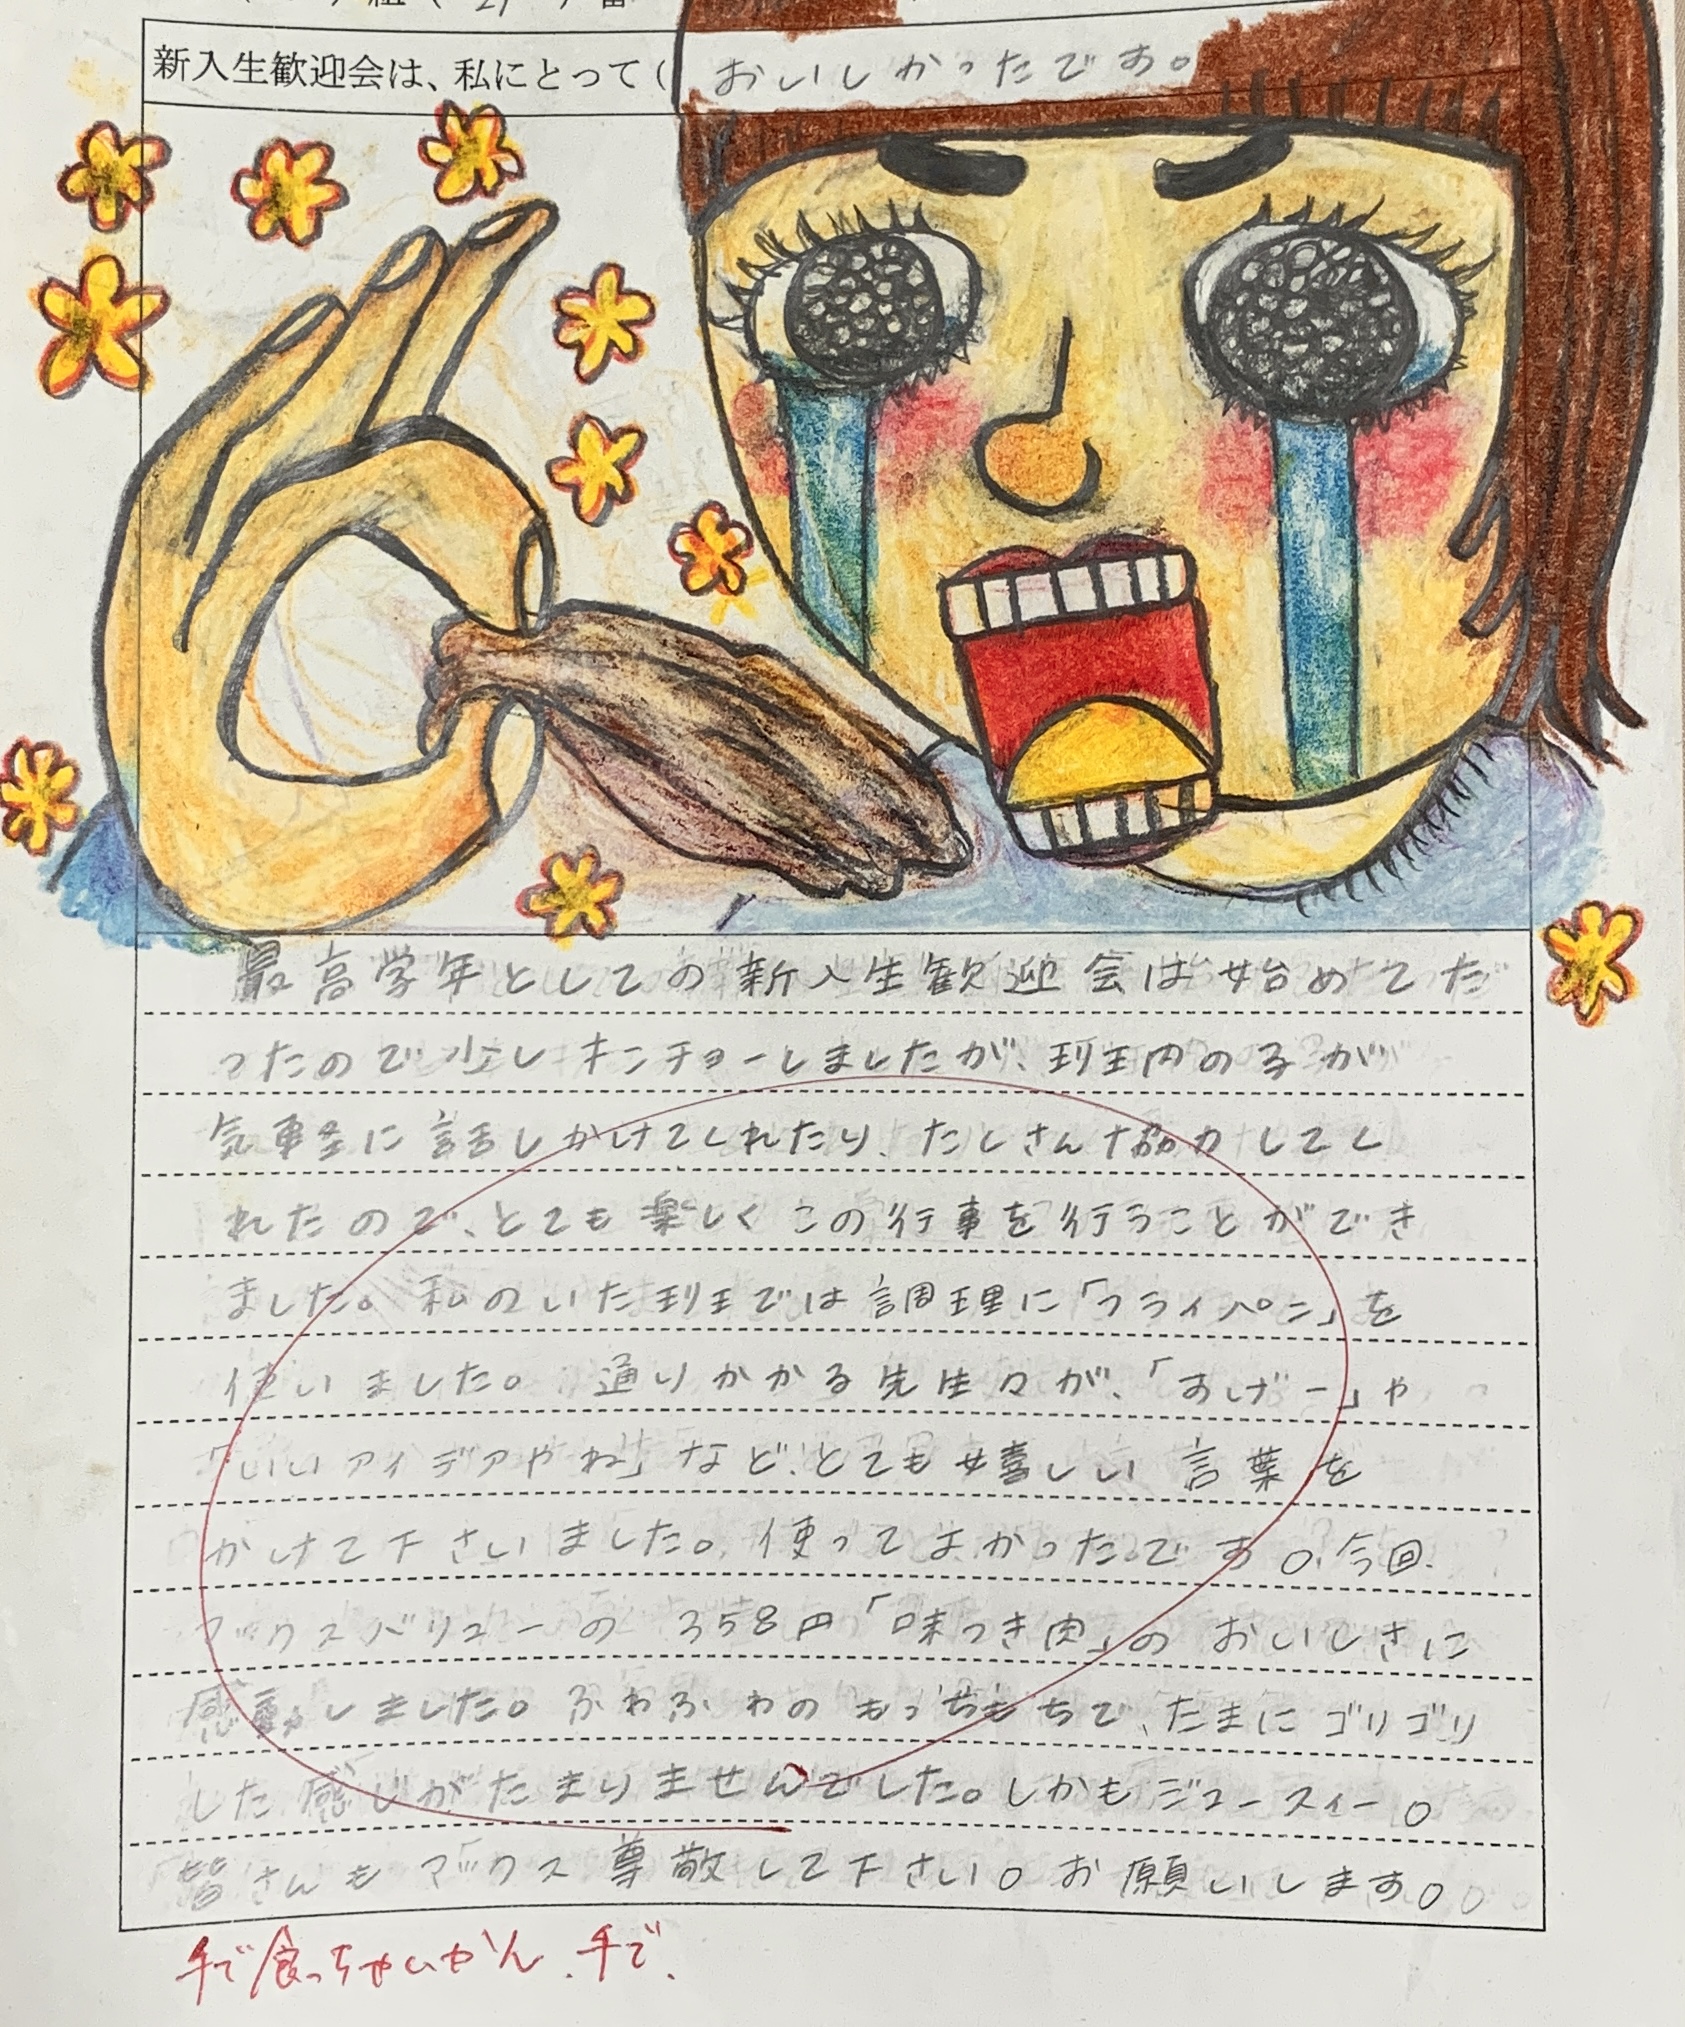 新入生歓迎会は、私にとって( おいしかったです。
最高学年としての新入生歓迎会は始めてだ
ったので少しキンチョーしましたが、班内の子が
気軽に話しかけてくれたり、たくさん協力してく
れたので、とても楽しくこの行事を行うことができ
ました。私のいた班では調理に「フライパン」を
使いました。通りかかる先生々が、「すげー」や
「いいアイデアやね」など、とても嬉しい言葉を
かけて下さいました。使ってよかったです。今回、
マックスバリューの358円「味つき肉」のおいしさに
感動しました。ふわふわのもっちもちで、たまにゴリゴリ
した感じがたまりませんでした。しかもジュースィー。
皆さんもマックス尊敬して下さい。お願いします。
手で食っちゃいかん、手で、